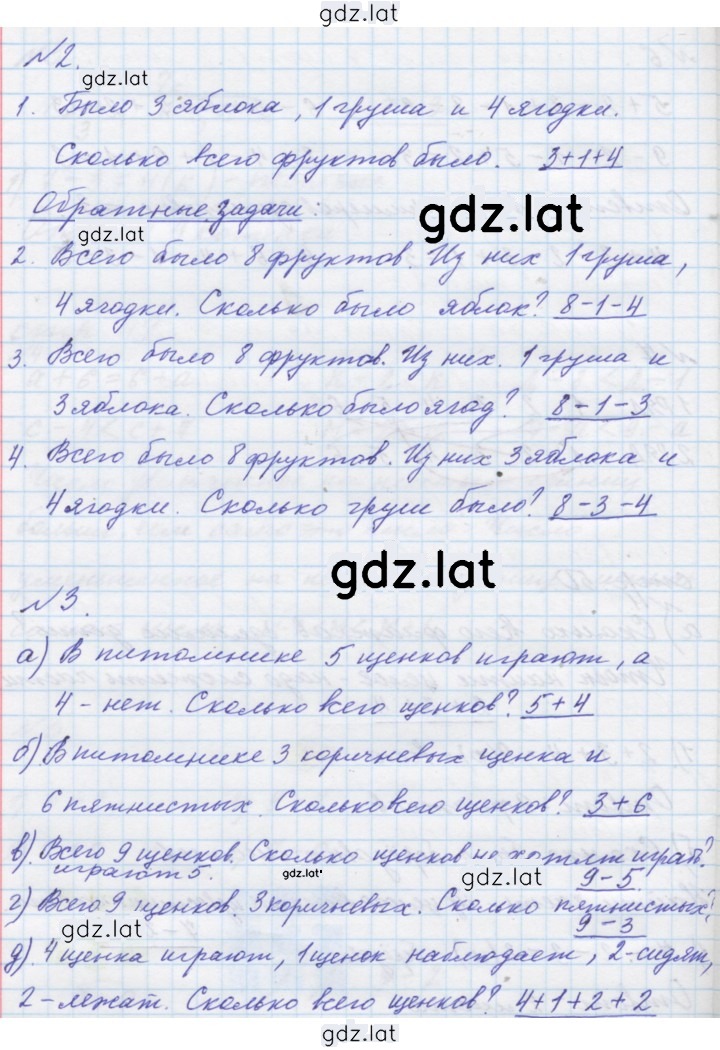 gdz.lat
№2.
gdz.lat
1. Было 3 яблока, 1 груша и 4 ягодки.
Сколько всего фруктов было. 3+1+4
Обратные задачи:
gdz.lat
gdz.lat
2. Всего было 8 фруктов. Из них 1 груша,
4 ягодки. Сколько было яблок? 8-1-4
3. Всего было 8 фруктов. Из них. 1 груша и
3 яблока. Сколько было ягод? 8-1-3
4. Всего было 8 фруктов. Из них 3 яблока и
4 ягодки. Сколько груш было? 8-3-4
gdz.lat
№3.
а) В питомнике 5 щенков играют, а
4 - нет. Сколько всего щенков? 5+4
б) В питомнике 3 коричневых щенка и
6 пятнистых. Сколько всего щенков? 3+6
в). Всего 9 щенков. Сколько щенков не хотят играть?
играют 5. 9-5
gdz.lat
gdz.lat
г) Всего 9 щенков. 3 коричневых. Сколько пятнистых?
9-3
gdz.lat
д). 4 щенка играют, 1 щенок наблюдает, 2-сидят,
2-лежат. Сколько всего щенков? 4+1+2+2
gdz.lat